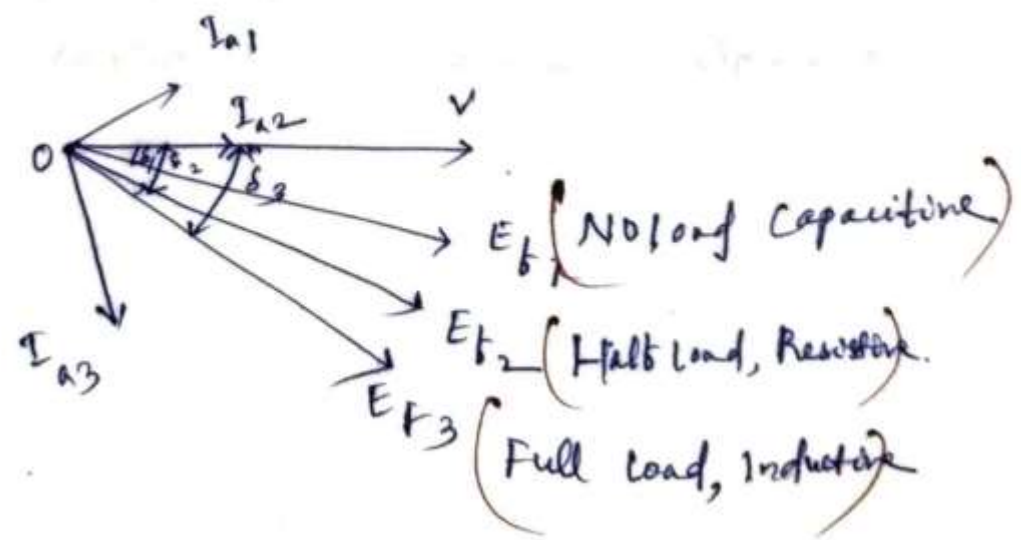 Ia1
Ia2
V
O
δ2
δ3
Ia3
Ef1 (No load Capacitive)
Ef2 (Half Load, Resistive.)
Ef3 (Full Load, Inductive)